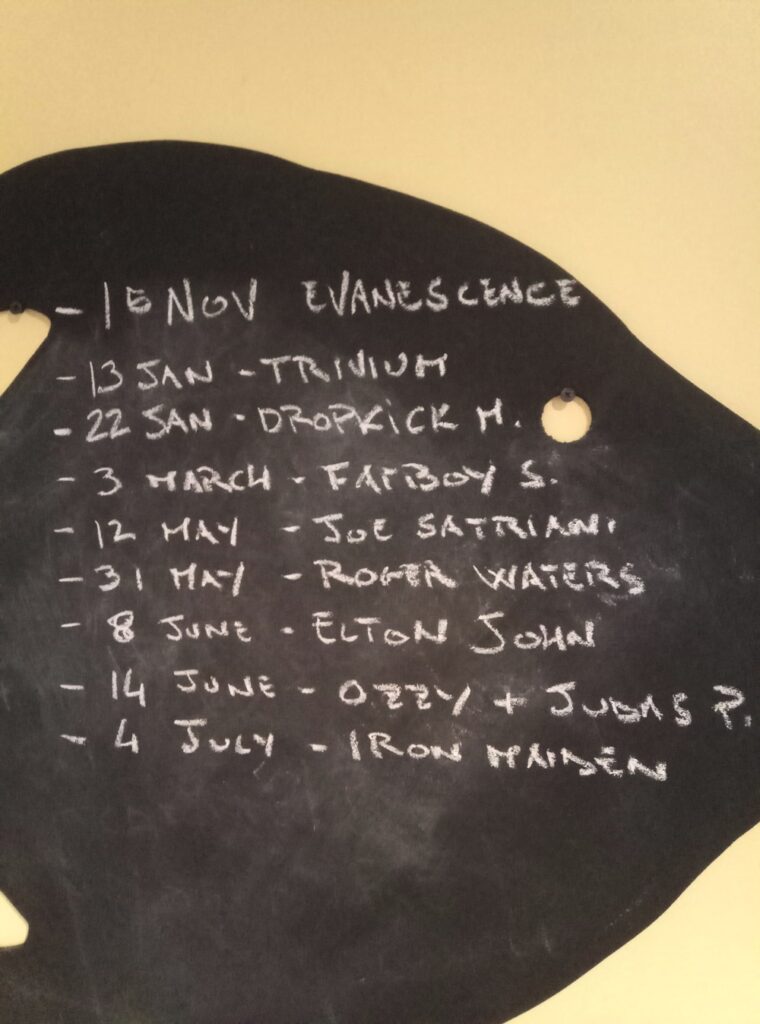 - 15 NOV EVANESCENCE
- 13 JAN - TRIVIUM
- 22 JAN - DROPKICK M.
- 3 MARCH - FATBOY S.
- 12 MAY - JOE SATRIANI
- 31 MAY - ROGER WATERS
- 8 JUNE - ELTON JOHN
- 14 JUNE - OZZY + JUDAS P.
- 4 JULY - IRON MAIDEN